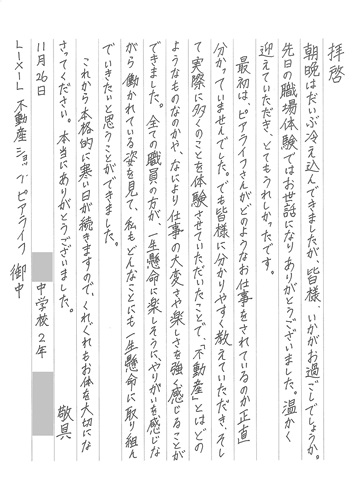 拝啓
朝晩はだいぶ冷え込んできましたが、皆様、いかがお過ごしでしょうか。
先日の職場体験ではお世話になりありがとうございました。温かく
迎えていただき、とてもうれしかったです。
最初は、ピアライフさんがどのようなお仕事をされているのか正直
分かってませんでした。でも皆様に分かりやすく教えていただき、そし
て実際に多くのことを体験させていただいたことで、「不動産」とはどの
ようなものなのかや、なにより仕事の大変さや楽しさを強く感じることが
できました。全ての職員の方が、一生懸命に楽しそうに、やりがいを感じな
がら働かれている姿を見て、私もどんなことにも一生懸命に取り組ん
でいきたいと思うことができました。
これから本格的に寒い日が続きますので、くれぐれもお体を大切にな
さってください。本当にありがとうございました。
敬具
11月26日
中学校2年
LIXIL不動産ショップ ピアライフ 御中